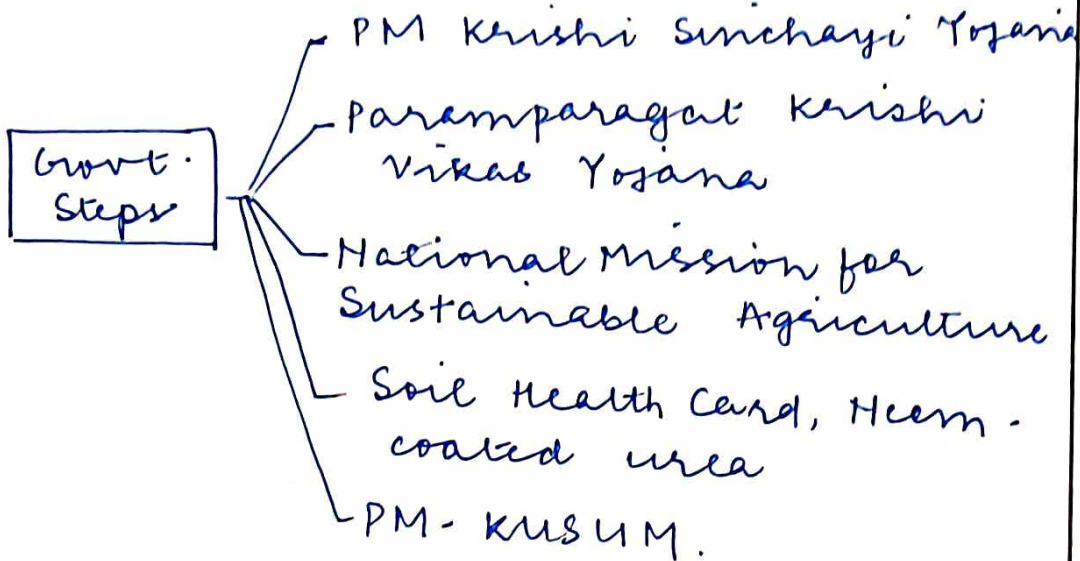 Govt.
Steps
PM Krishi Sinchayi Yojana
Paramparagat Krishi
Vikas Yojana
National Mission for
Sustainable Agriculture
Soil Health Card, Neem-
coated urea
PM-KUSUM.